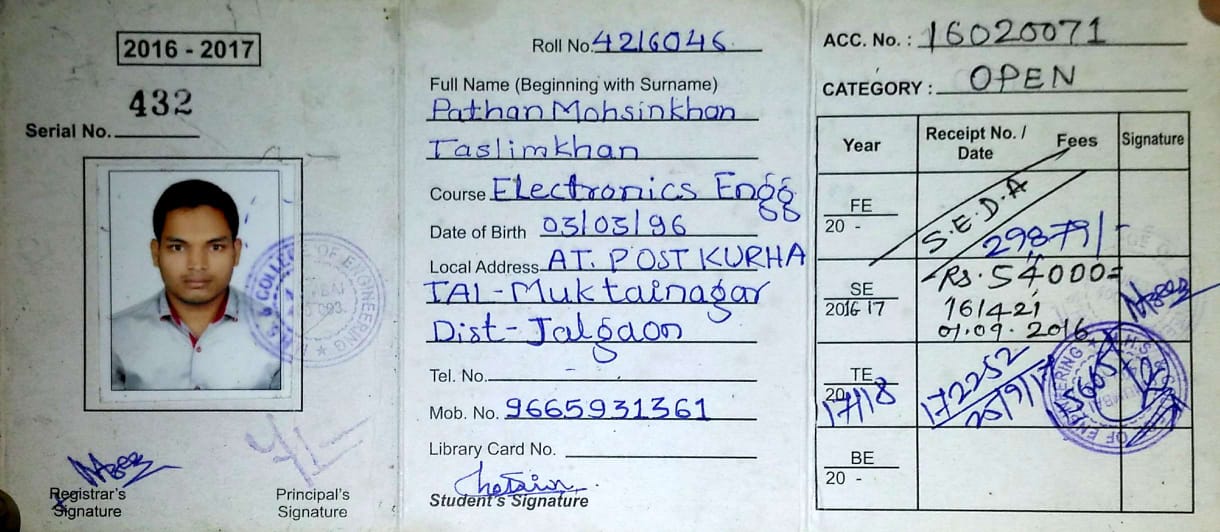 2016 - 2017
432
Serial No.
COLLEGE OF ENGINEERING
Registrar's
Signature
Principal's
Signature
Roll No. 4216046
Full Name (Beginning with Surname)
Pathan Mohsinkhan
Taslimkhan
Course Electronics Engg
Date of Birth 03/03/96
Local Address AT. POST KURHA
TAL-Muktainagar
Dist-Jalgaon
Tel. No.
Mob. No. 9665931361
Library Card No.
Student's Signature
ACC. No. : 16020071
CATEGORY : OPEN
Year Receipt No. / Date Fees Signature
FE
20 -
S.E.D.A
29879/-
SE
2016-17
Rs. 54000=
16/421
01.09.2016
TE
20
17/18
172252
20/9/17
BE
20 -